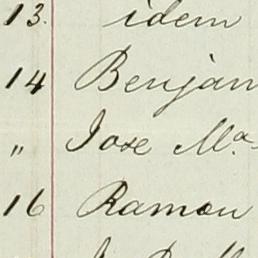 13. idem
14 Benjan
" Jose Ma.
16 Ramon